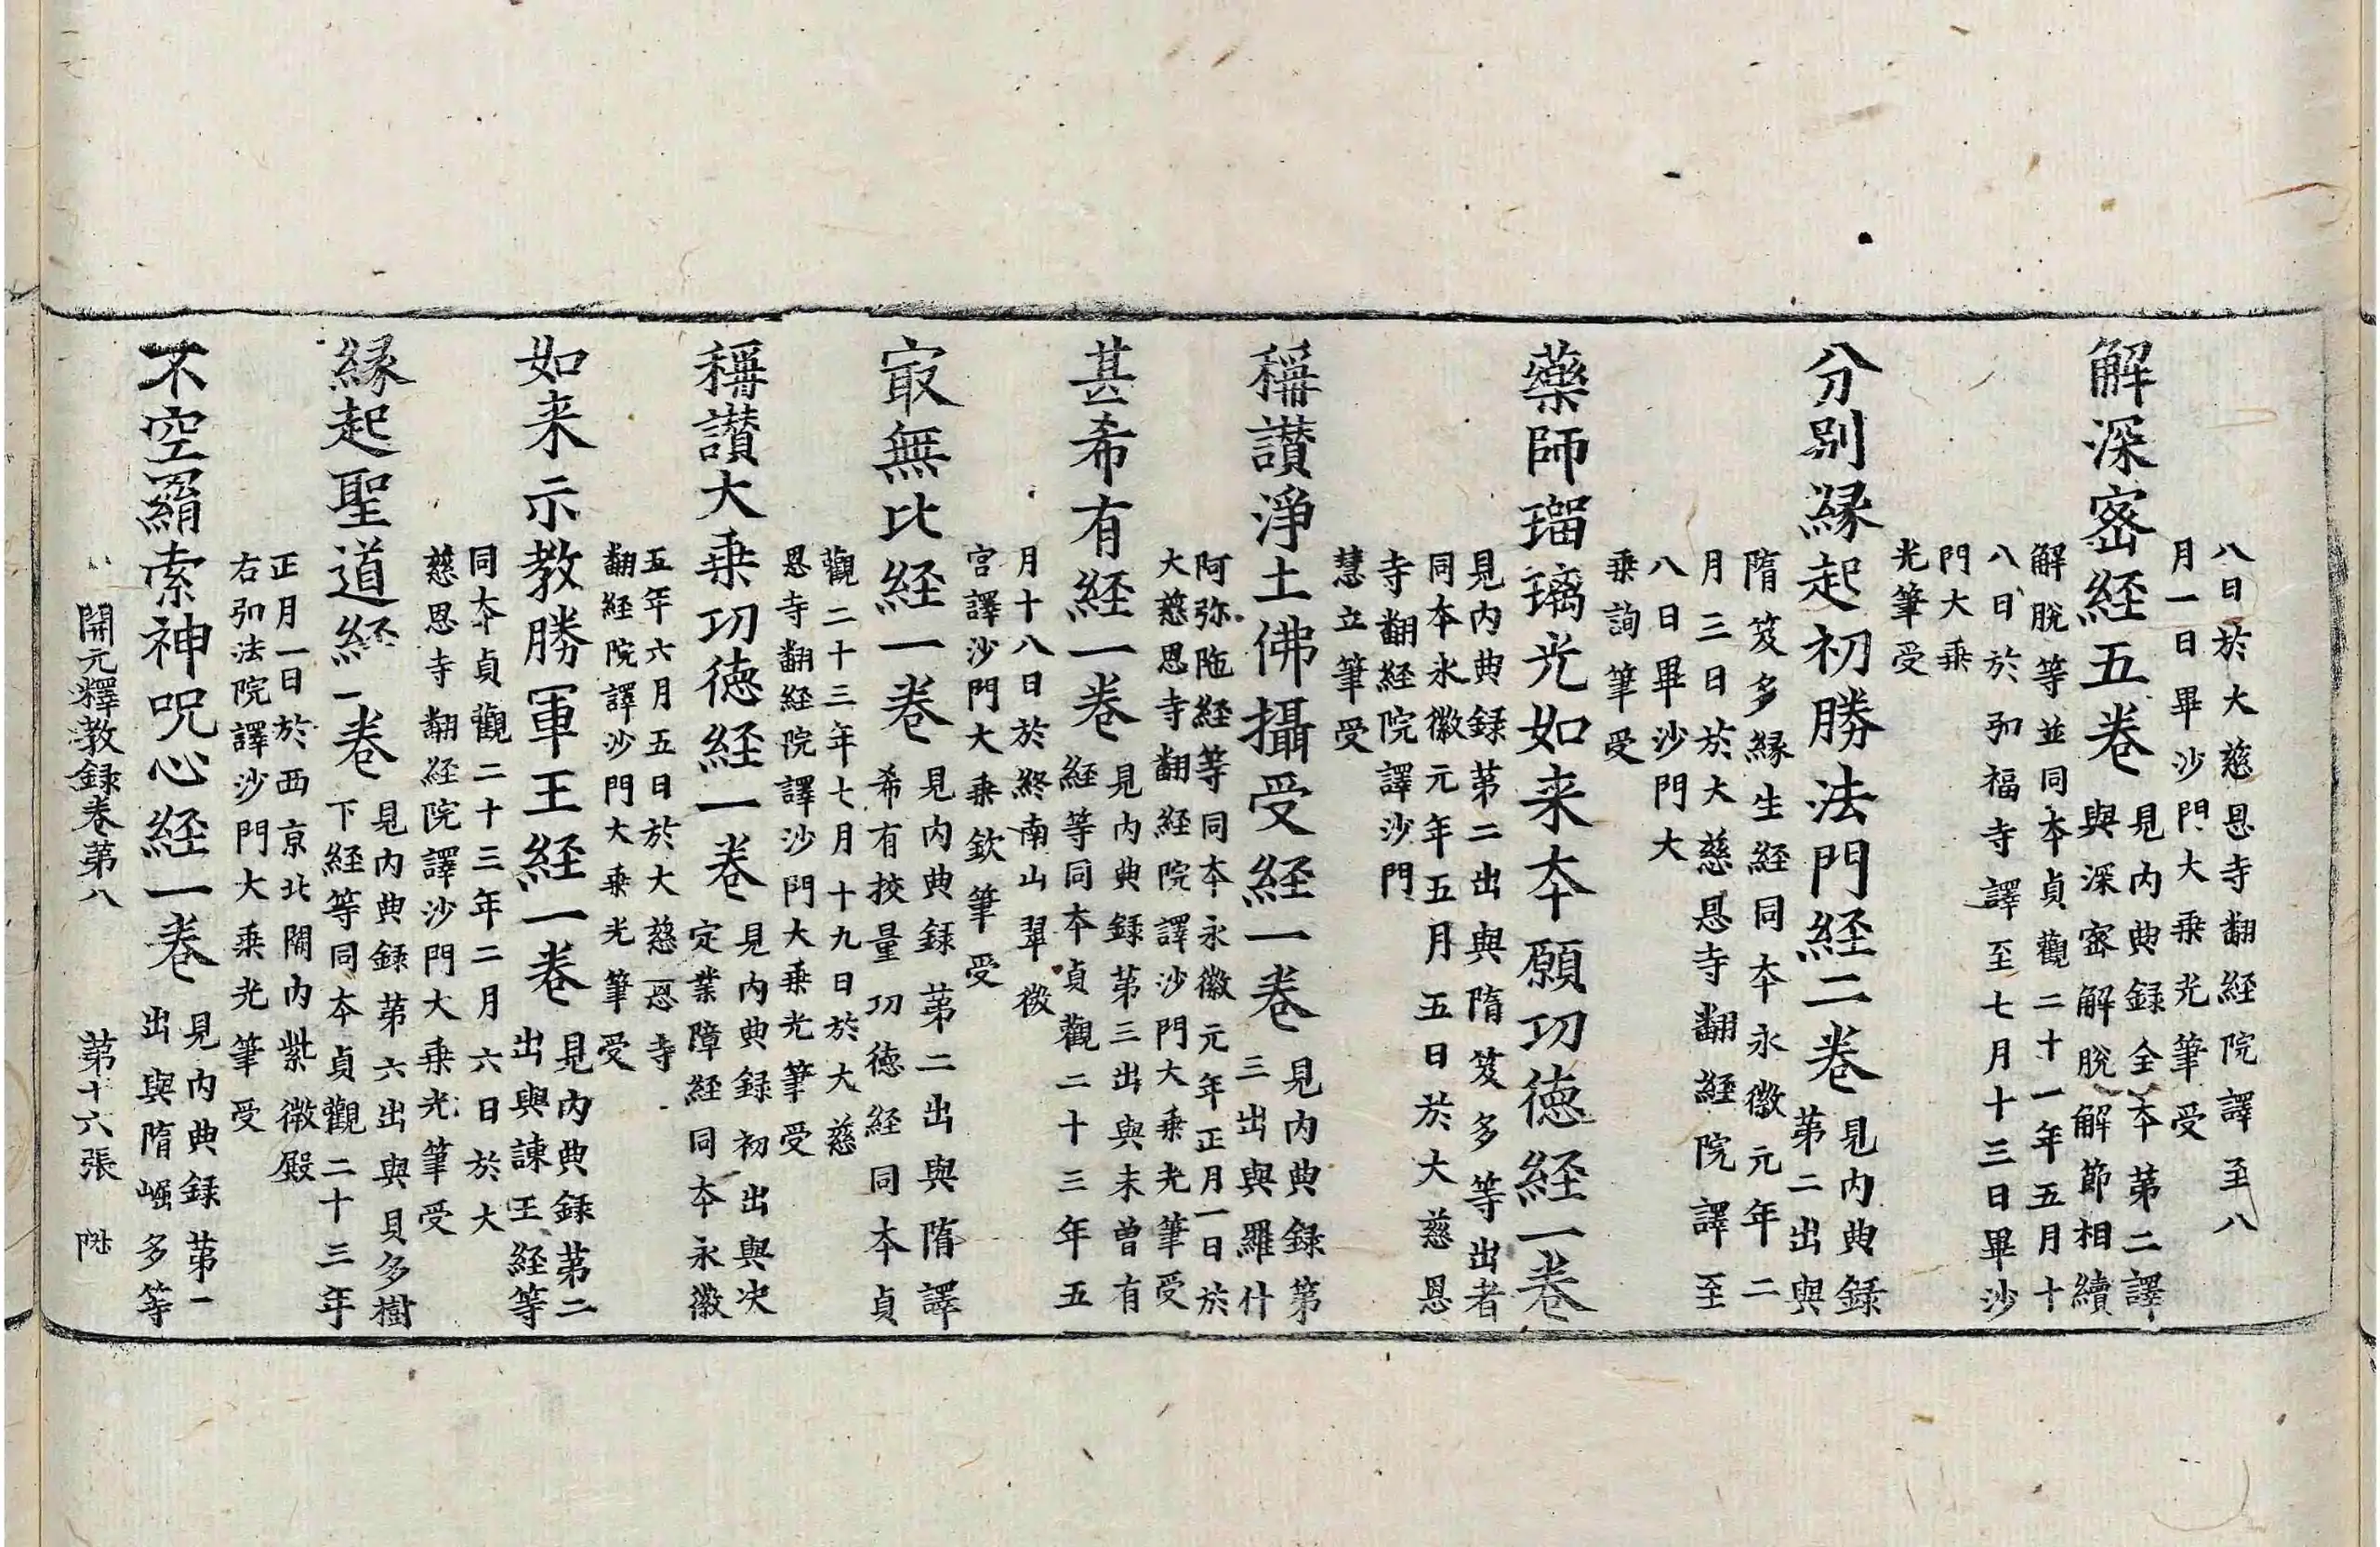 八日於大慈恩寺翻経院譯至八
月一日畢沙門大乗光筆受
解深宻経五巻
見内典録全夲苐二譯
與深宻解脫解節相續
解脫等並同夲貞觀二十一年五月十
八日於弘福寺譯至七月十三日畢沙
門大乗
光筆受
分別縁起初勝法門経二巻
見内典録
苐二出與
隋笈多縁生経同夲永徽元年二
月三日於大慈恩寺翻経院譯至
八日畢沙門大
乗詢筆受
藥師瑠璃光如来夲願功徳経一巻
見内典録苐二出與隋笈多等出者
同夲永徽元年五月五日於大慈恩
寺翻経院譯沙門
慧立筆受
稱讃淨土佛攝受経一巻
見内典録第
三出與羅什
阿弥陁経等同夲永徽元年正月一日於
大慈恩寺翻経院譯沙門大乗光筆受
甚希有経一巻
見内典録苐三出與未曽有
経等同夲貞觀二十三年五
月十八日於終南山翠微
宫譯沙門大乗欽筆受
㝡無比経一巻
見内典録苐二出與隋譯
希有挍量功徳経同夲貞
觀二十三年七月十九日於大慈
恩寺翻経院譯沙門大乗光筆受
稱讃大乗功徳経一巻
見内典録初出與决
定業障経同夲永徽
五年六月五日於大慈恩寺
翻経院譯沙門大乗光筆受
如来示教勝軍王経一巻
見内典録苐二
出與諫王経等
同夲貞觀二十三年二月六日於大
慈恩寺翻経院譯沙門大乗光筆受
縁起聖道経一巻
見内典録苐六出與貝多樹
下経等同夲貞觀二十三年
正月一日於西京北闕内紫微殿
右弘法院譯沙門大乗光筆受
不空羂索神呪心経一巻
見内典録苐一
出與隋崛多等
開元釋教録巻苐八　苐十六張